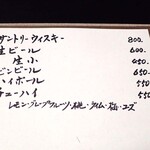 サントリーウィスキー 800.
生ビール 600.
生小 450
ビンビール 650
ハイボール 550
チューハイ 550
レモン・グレープフルーツ・桃・ライム・梅・ユズ